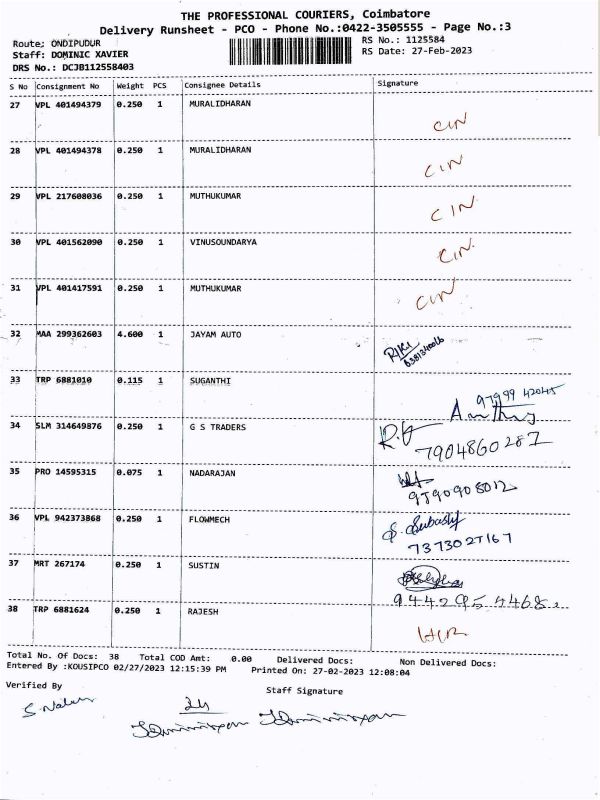 THE PROFESSIONAL COURIERS, Coimbatore
Delivery Runsheet - PCO - Phone No.:0422-3505555 - Page No.:3
Route: ONDIPUDUR
RS No.: 1125584
Staff: DOMINIC XAVIER
RS Date: 27-Feb-2023
DRS No.: DCJB112558403
S No Consignment No Weight PCS Consignee Details Signature
27 VPL 401494379 0.250 1 MURALIDHARAN
CIN
28 VPL 401494378 0.250 1 MURALIDHARAN
CIN
29 VPL 217608036 0.250 1 MUTHUKUMAR
CIN
30 VPL 401562090 0.250 1 VINUSOUNDARYA
CIN
31 VPL 401417591 0.250 1 MUTHUKUMAR
CIN
32 MAA 299362603 4.600 1 JAYAM AUTO
33 TRP 6881010 0.115 1 SUGANTHI
97999 42045
34 SLM 314649876 0.250 1 G S TRADERS
7904860287
35 PRO 14595315 0.075 1 NADARAJAN
9790908012
36 VPL 942373868 0.250 1 FLOWMECH
7373027167
37 MRT 267174 0.250 1 SUSTIN
9442954468
38 TRP 6881624 0.250 1 RAJESH
Total No. Of Docs: 38 Total COD Amt: 0.00 Delivered Docs: Non Delivered Docs:
Entered By :KOUSIPCO 02/27/2023 12:15:39 PM Printed On: 27-02-2023 12:08:04
Verified By
Staff Signature